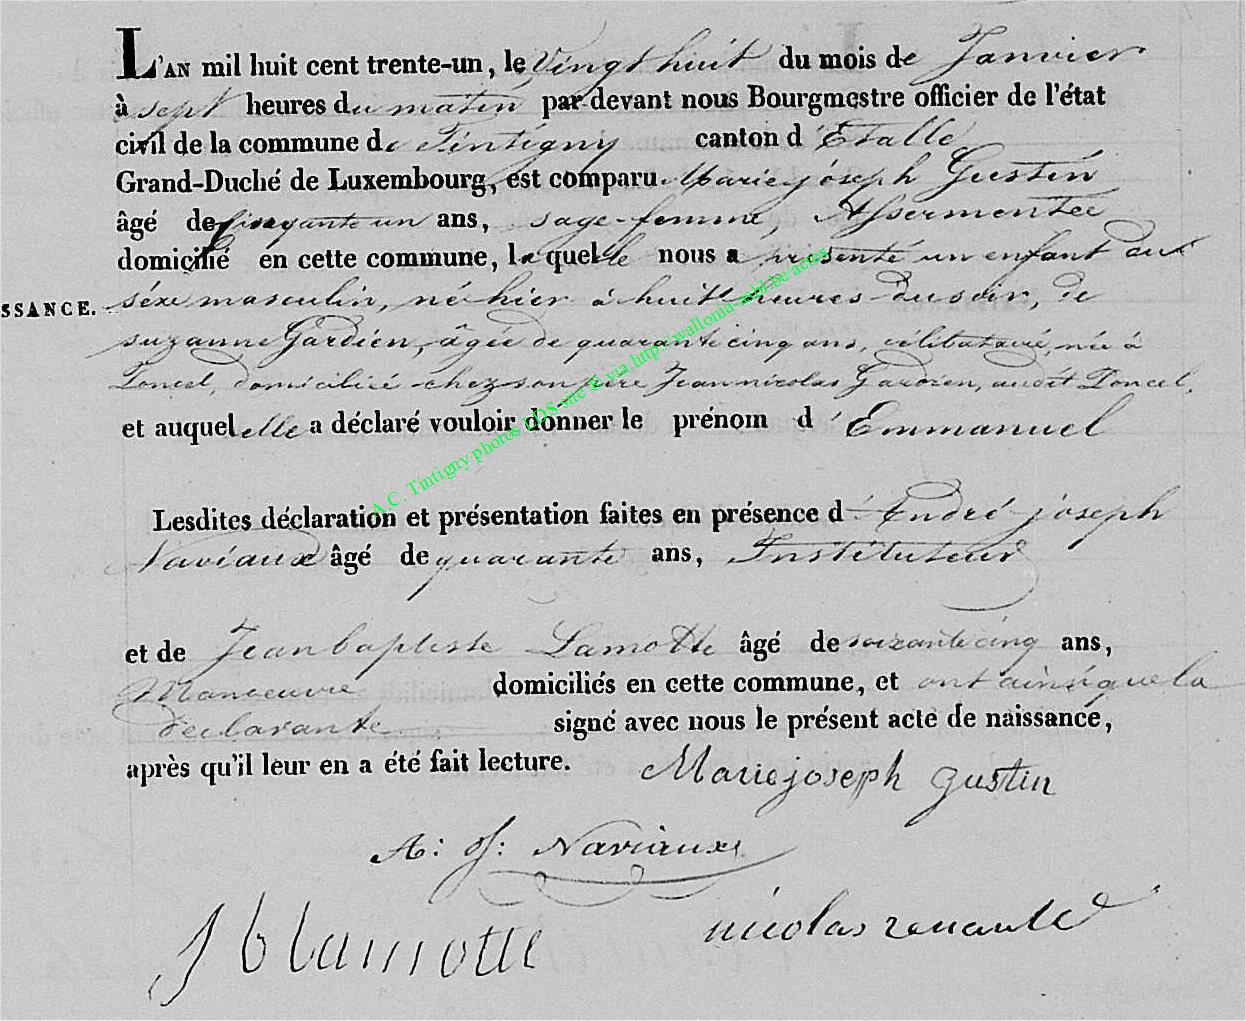 L'AN mil huit cent trente-un, le Vingt huit du mois de Janvier
à sept heures du matin par devant nous Bourgmestre officier de l'état
civil de la commune de Tintigny canton d'Etalle
Grand-Duché de Luxembourg, est comparu Marie jóseph Gustin
âgé de cinquante un ans, sage-femme, Assermentée
domicilié en cette commune, laquelle nous a présenté un enfant du
SSANCE. séxe masculin, né hier à huit heures du soir, de
suzanne Gardien, âgée de quarante cinq ans, célibataire, née à
Poncel, domiciliée chez son père Jean nicolas Gardien, audit Poncel,
et auquel elle a déclaré vouloir donner le prénom d'Emmanuel
A.C. Tintigny photos LDS site © via http://wallonia-asbl.be/actes
Lesdites déclaration et présentation faites en présence d'André jóseph
Naviaux âgé de quarante ans, Instituteur
et de Jean baptiste Lamotte âgé de soixante cinq ans,
Manoeuvre domiciliés en cette commune, et ont ainsi que la
déclarante signé avec nous le présent acte de naissance,
après qu'il leur en a été fait lecture. Marie joseph gustin
A: J: Naviaux
J b lamotte nicolas renauld